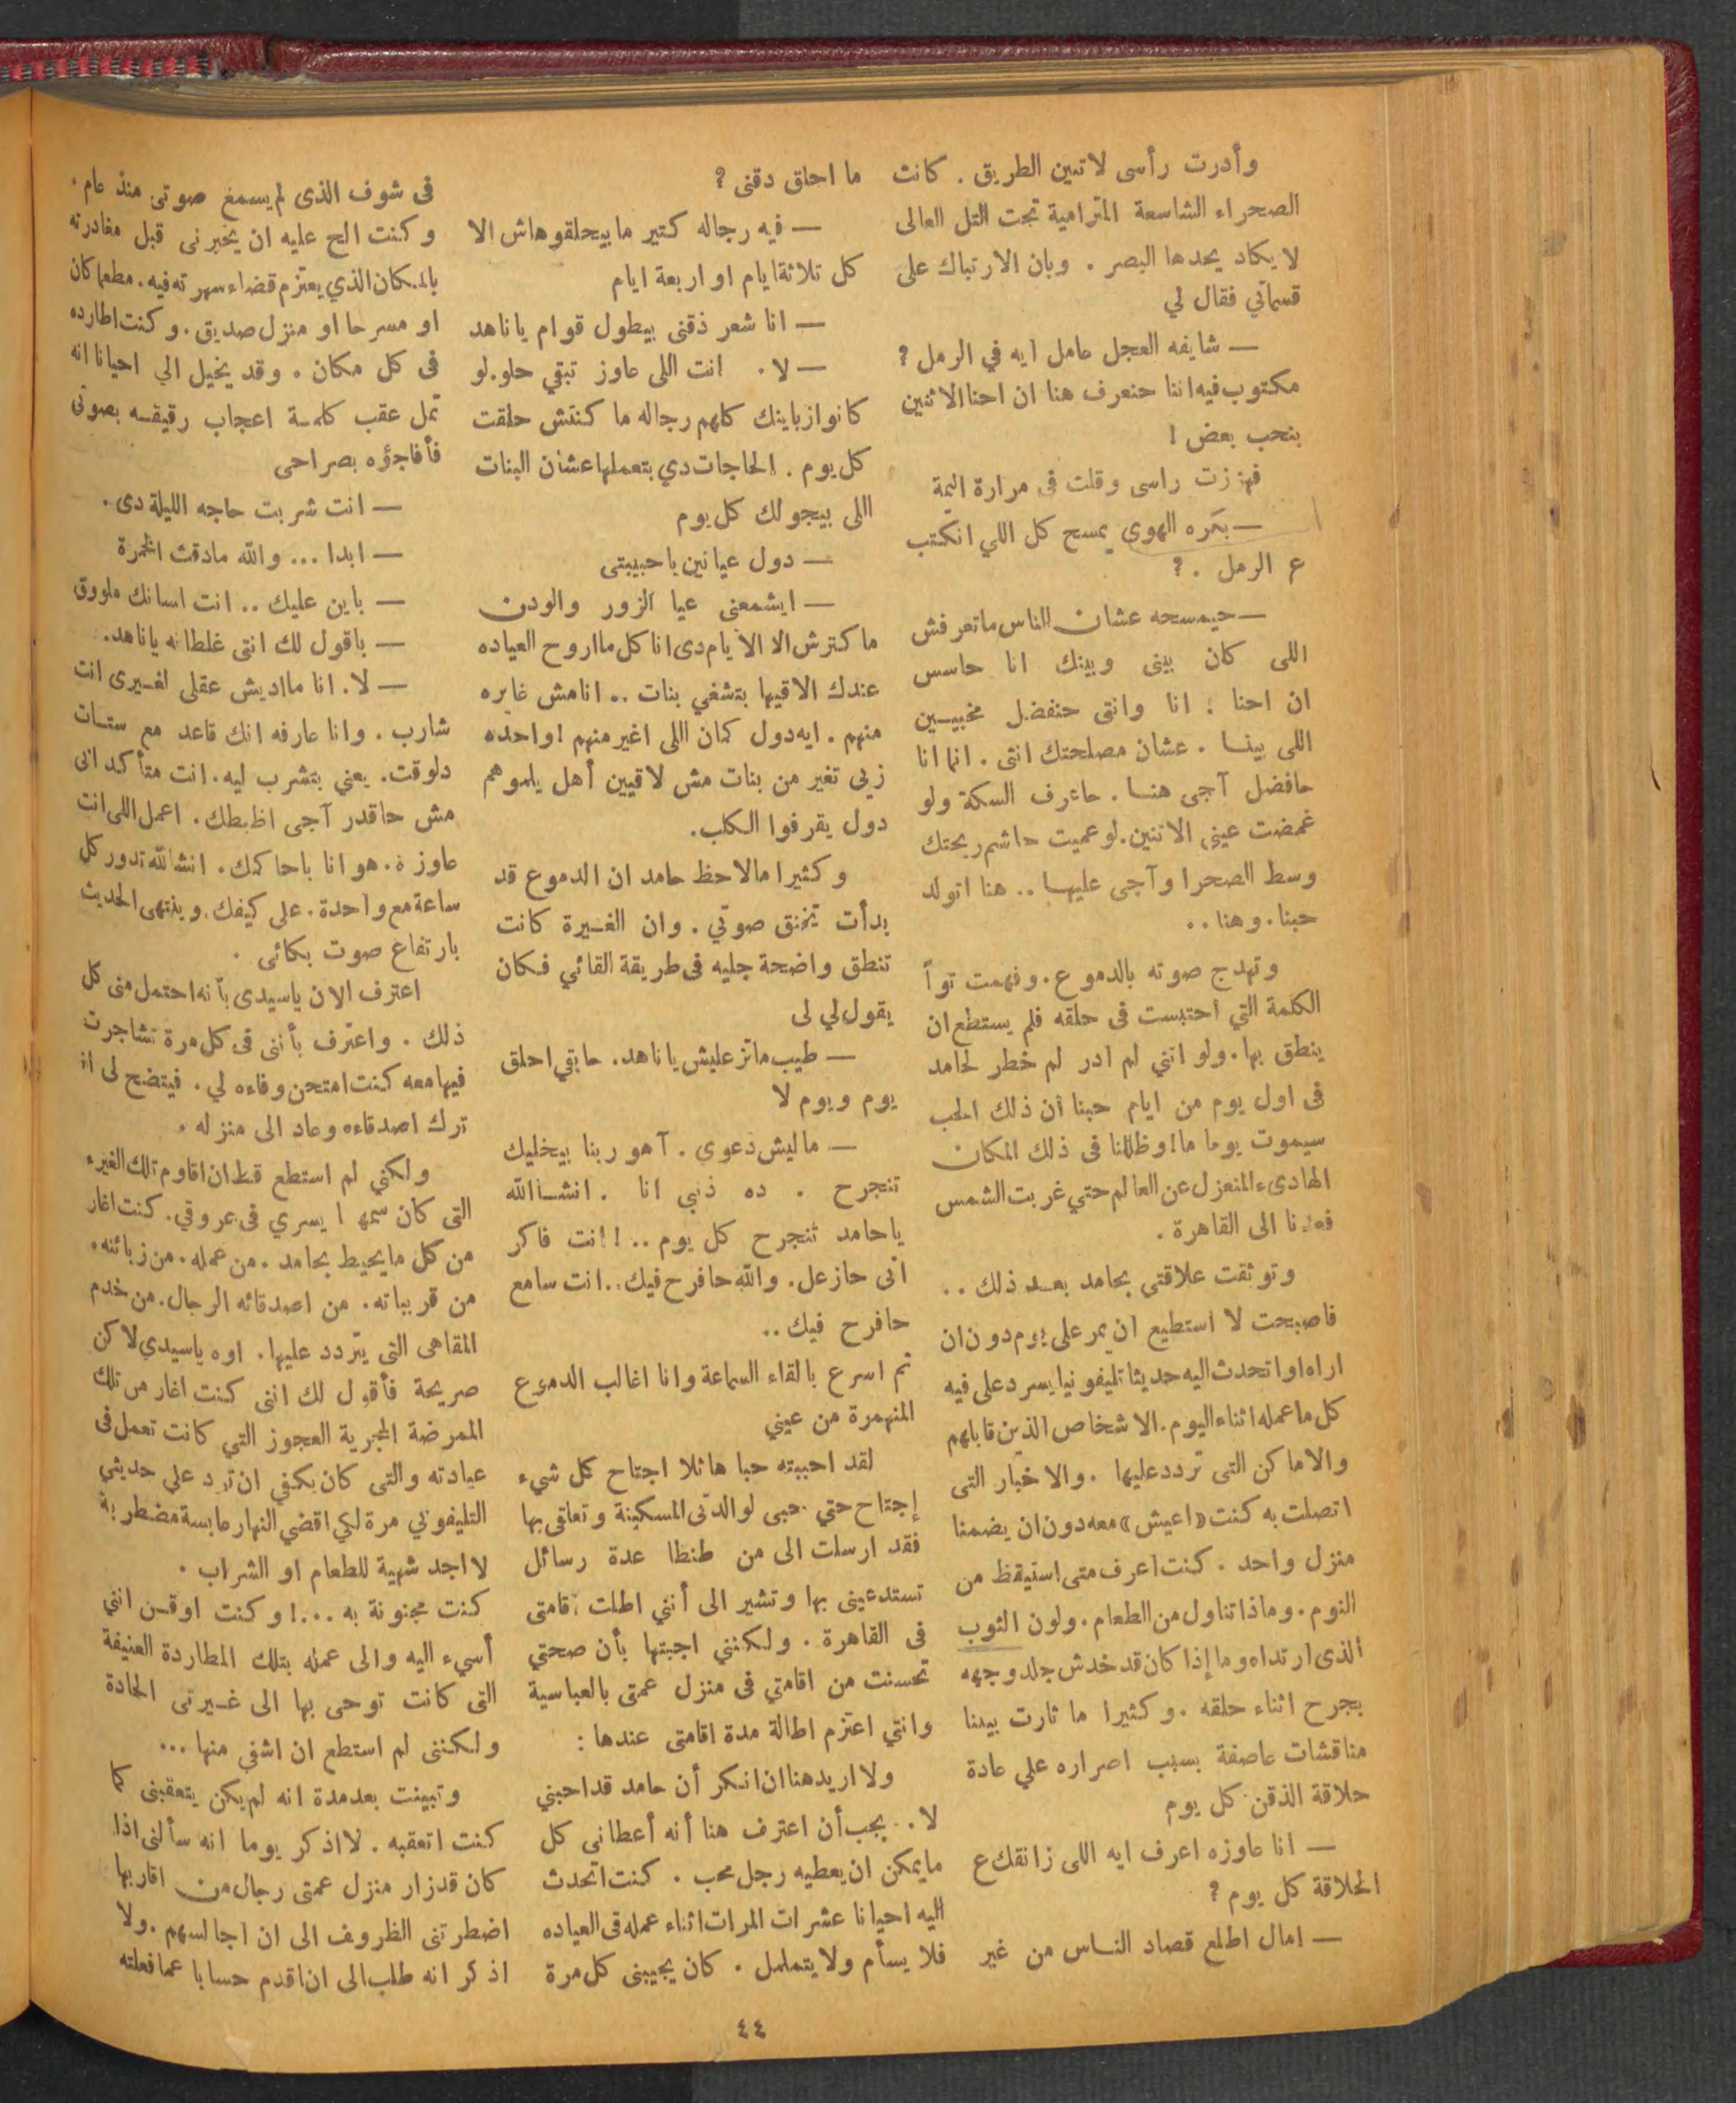 وأدرت رأسى لاتبين الطريق . كانت
الصحراء الشاسعة المترامية تحت التل العالى
لا يكاد يحدها البصر . وبان الارتباك على
قسماتي فقال لي
— شايفه العجل عامل ايه في الرمل ؟
مكتوب فيه اننا حنعرف هنا ان احنا الاتنين
بنحب بعض !
فهززت راسى وقلت فى مرارة اليمة
— بكره الهوى يمسح كل اللي انكتب
ع الرمل . ؟
— حيمسحه عشان الناس ماتعرفش
اللى كان بينى وبينك انا حاسس
ان احنا : انا وانتى حنفضل مخبيين
اللى بينا . عشان مصلحتك انتى . انما انا
حافضل آجى هنا . حاعرف السكة ولو
غمضت عينى الاتنين . لو عميت حاشم ريحتك
وسط الصحرا وآجى عليها .. هنا اتولد
حبنا . وهنا . .
وتهدج صوته بالدموع . وفهمت تواً
الكلمة التي احتبست فى حلقه فلم يستطع ان
ينطق بها . ولو اننى لم ادر لم خطر لحامد
فى اول يوم من ايام حبنا أن ذلك الحب
سيموت يوما ما ! وظللنا فى ذلك المكان
الهادىء المنعزل عن العالم حتي غربت الشمس
فعدنا الى القاهرة .
وتوثقت علاقتى بحامد بعد ذلك . .
فاصبحت لا استطيع ان يمر على يوم دون ان
اراه او اتحدث اليه حديثا تليفونيا يسرد على فيه
كل ما عمله اثناء اليوم . الاشخاص الذين قابلهم
والاماكن التى تردد عليها . والاخبار التى
اتصلت به كنت «اعيش» معه دون ان يضمنا
منزل واحد . كنت اعرف متى استيقظ من
النوم . وماذا تناول من الطعام . ولون الثوب
الذى ارتداه وما إذا كان قد خدش جلد وجهه
بجرح اثناء حلقه . وكثيرا ما ثارت بيننا
مناقشات عاصفة بسبب اصراره علي عادة
حلاقة الذقن كل يوم
— انا عاوزه اعرف ايه اللى زانقك ع
الحلاقة كل يوم ؟
— امال اطلع قصاد الناس من غير
ما احلق دقنى ؟
— فيه رجاله كتير ما بيحلقوهاش الا
كل تلاثة ايام او اربعة ايام
— انا شعر ذقنى بيطول قوام يا ناهد
— لا . انت اللى عاوز تبقي حلو . لو
كانوا زباينك كلهم رجاله ما كنتش حلقت
كل يوم . الحاجات دي بتعملها عشان البنات
اللى بيجولك كل يوم
— دول عيانين يا حبيبتى
— ايشمعنى عيا الزور والودن
ما كترش الا الايام دى انا كل ما اروح العياده
عندك الاقيها بتشغي بنات .. انا مش غايره
منهم . ايه دول كمان اللى اغير منهم ! واحده
زيى تغير من بنات مش لاقيين أهل يلموهم
دول يقرفوا الكلب .
وكثيرا ما لاحظ حامد ان الدموع قد
بدأت تخنق صوتي . وان الغيرة كانت
تنطق واضحة جليه فى طريقة القائي فكان
يقول لي لى
— طيب ماتزعليش يا ناهد . حابقي احلق
يوم ويوم لا
— ماليش دعوى . آهو ربنا بيخليك
تنجرح . ده ذنبي انا . انشاالله
يا حامد تنجرح كل يوم .. ! انت فاكر
انى حازعل . والله حافرح فيك .. انت سامع
حافرح فيك ..
ثم اسرع بالقاء السماعة وانا اغالب الدموع
المنهمرة من عيني
لقد احببته حبا هائلا اجتاح كل شيء
إجتاح حتي حبى لوالدتى المسكينة وتعلقى بها
فقد ارسلت الى من طنطا عدة رسائل
تستدعينى بها وتشير الى أنني اطلت اقامتى
فى القاهرة . ولكننى اجبتها بأن صحتي
تحسنت من اقامتي فى منزل عمتى بالعباسية
وانني اعتزم اطالة مدة اقامتى عندها :
ولا اريد هنا ان انكر أن حامد قد احبني
لا . يجب أن اعترف هنا أنه أعطانى كل
ما يمكن ان يعطيه رجل محب . كنت اتحدث
اليه احيانا عشرات المرات اثناء عمله فى العياده
فلا يسأم ولا يتململ . كان يجيبنى كل مرة
فى شوف الذى لم يسمع صوتى منذ عام .
وكنت الح عليه ان يخبرنى قبل مغادرته
بالمكان الذي يعتزم قضاء سهرته فيه . مطعما كان
او مسرحا او منزل صديق . وكنت اطارده
فى كل مكان . وقد يخيل الي احيانا انه
ثمل عقب كلمة اعجاب رقيقه بصوتى
فأفاجؤه بصراحى
— انت شربت حاجه الليلة دى .
— ابدا ... والله مادقت الخمرة
— باين عليك .. انت لسانك ملووق
— باقول لك انتى غلطانه يا ناهد .
— لا . انا ماادیش عقلى لغيرى انت
شارب . وانا عارفه انك قاعد مع ستات
دلوقت . يعني بتشرب ليه . انت متأكد انى
مش حاقدر آجى اظبطك . اعمل اللى انت
عاوزه . هو انا باحاكمك . انشالله تدور كل
ساعة مع واحدة . على كيفك . وينتهى الحديث
بارتفاع صوت بكائى .
اعترف الان ياسيدى بأنه احتمل منى كل
ذلك . واعترف بأننى فى كل مرة تشاجرت
فيها معه كنت امتحن وفاءه لي . فيتضح لى انه
ترك اصدقاءه وعاد الى منزله .
ولكني لم استطع قط ان اقاوم تلك الغيره
التى كان سمها يسري فى عروقي . كنت اغار
من كل ما يحيط بحامد . من عمله . من زبائنه .
من قريباته . من اصدقائه الرجال . من خدم
المقاهى التي يتردد عليها . اوه ياسيدي لاكن
صريحة فأقول لك اننى كنت اغار من تلك
الممرضة المجرية العجوز التي كانت تعمل فى
عيادته والتى كان يكفي ان ترد علي حديثي
التليفوني مرة لكي اقضي النهار عابسة مضطربة
لا اجد شهية للطعام او الشراب .
كنت مجنونة به ...! وكنت اوقن انني
أسيء اليه والى عمله بتلك المطاردة العنيفة
التى كانت توحى بها الى غيرتى الحادة
ولكننى لم استطع ان اشفي منها ...
وتبينت بعد مدة انه لم يكن يتعقبنى كما
كنت اتعقبه . لا اذكر يوما انه سألنى اذا
كان قد زار منزل عمتى رجال من اقاربها
اضطرتنى الظروف الى ان اجالسهم . ولا
اذكر انه طلب الى ان اقدم حسابا عما فعلته
٤٤